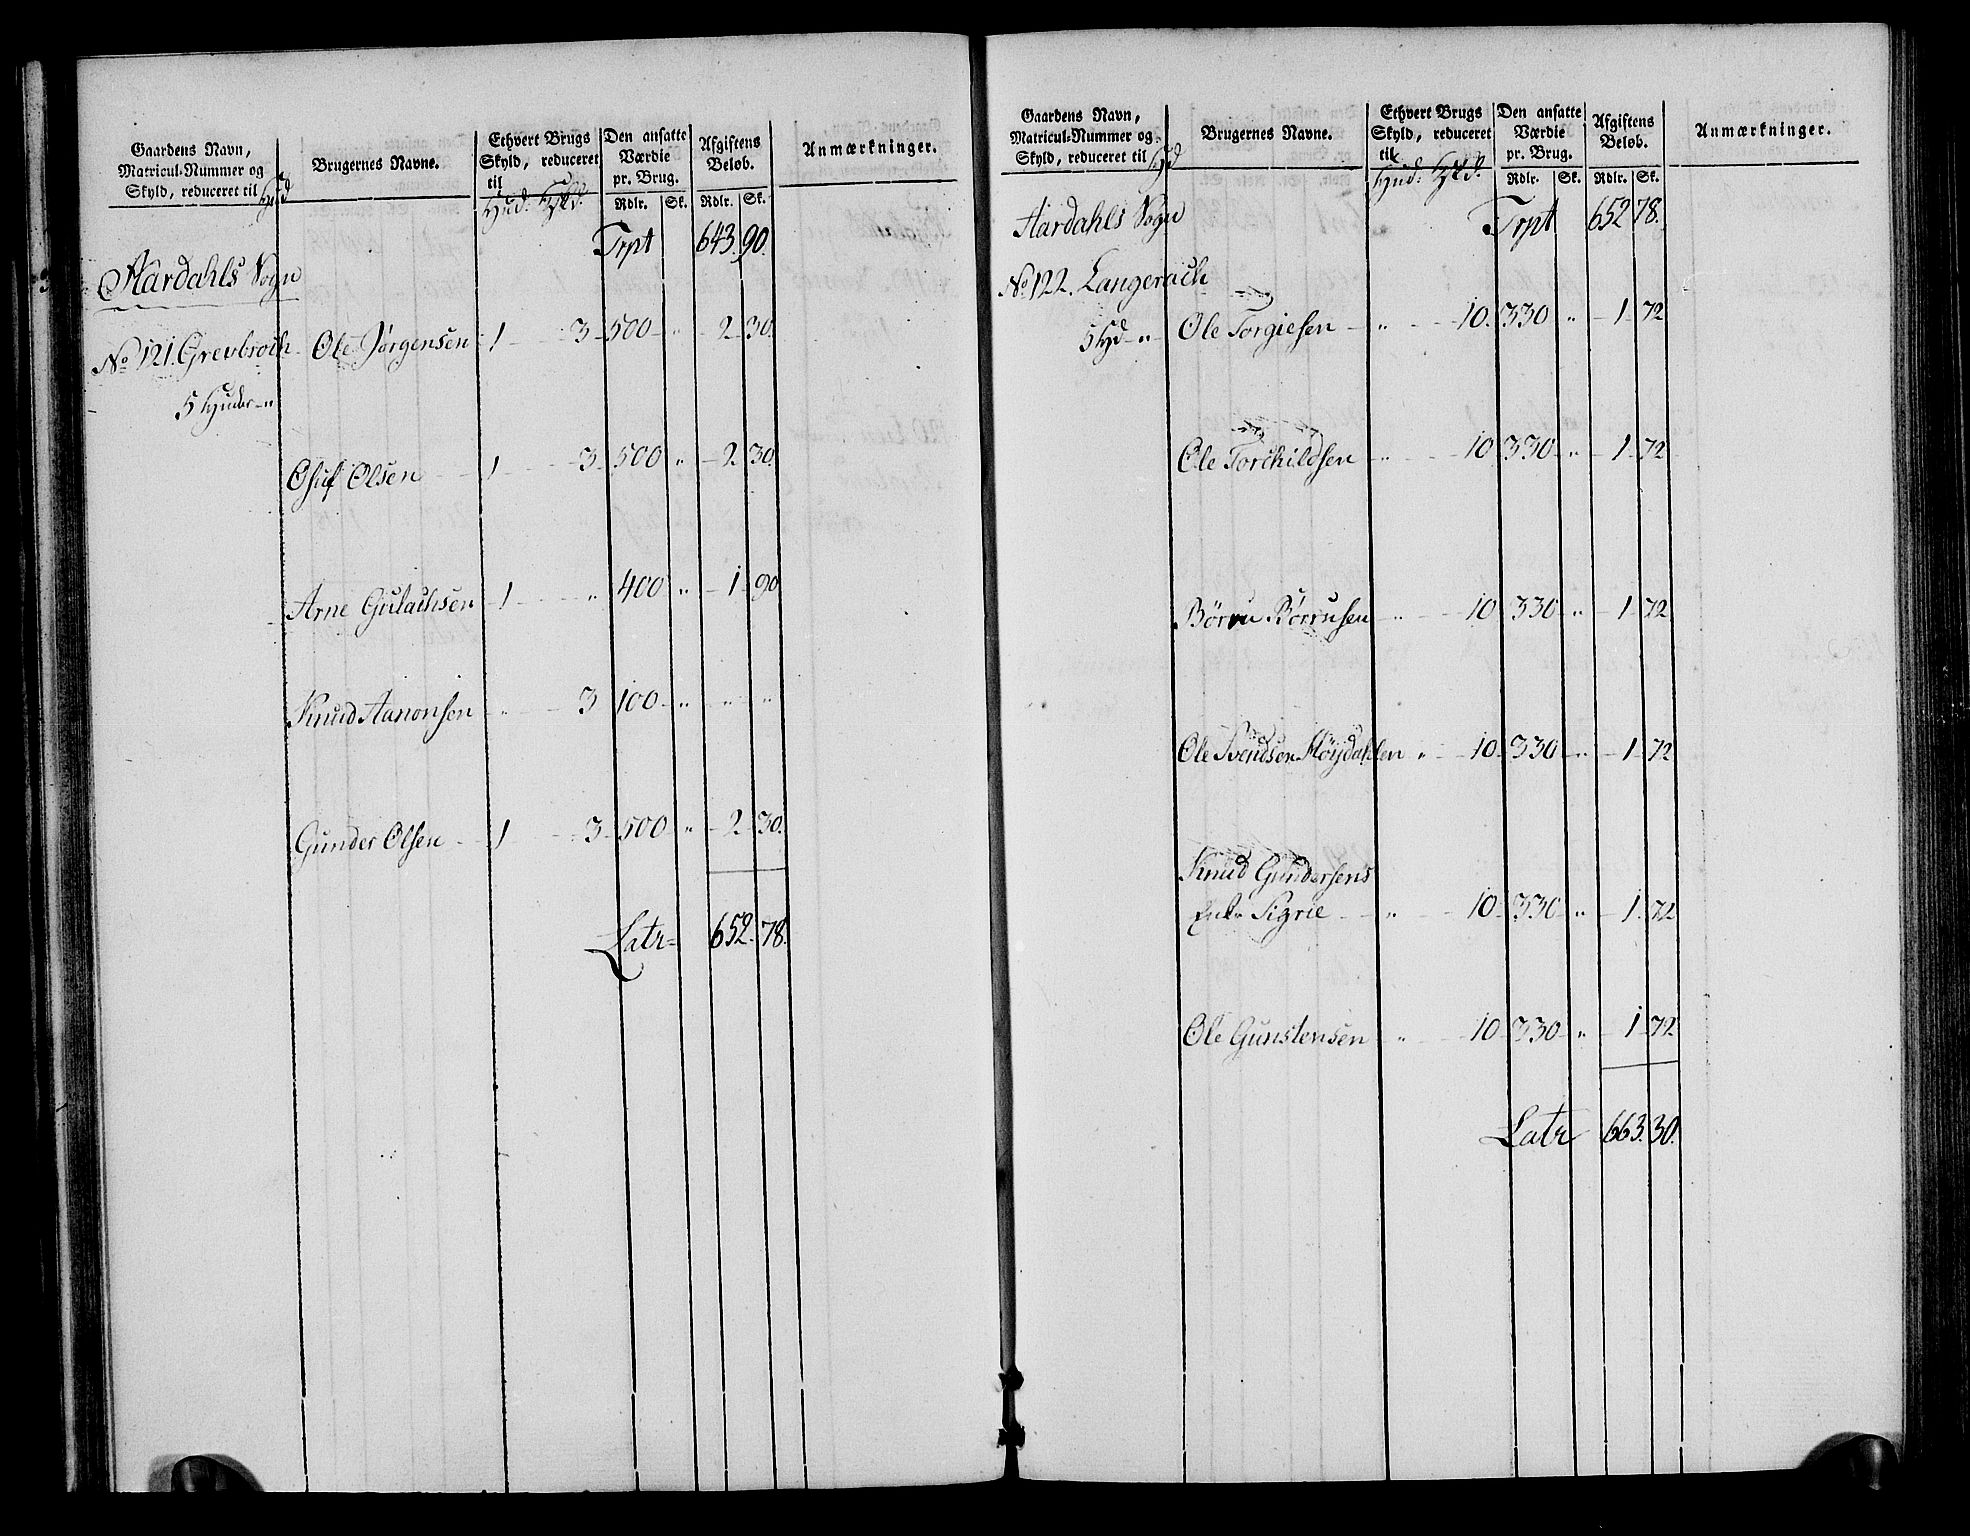 Gaardens Navn, Matricul-Nummer og Skyld, reduceret til Hud
Brugernes Navne.
Ethvert Brugs Skyld, reduceret til
Hud:
Den ansatte Værdie pr. Brug.
Rdlr. Sk.
Afgiftens Beløb.
Rdlr. Sk.
Anmærkninger.
Trpt 643. 90.
Aardahls Sogn
No 121. Grevbroch Ole Jörgensen 1 3 500 " 2 30.
5 Huder "
Osuf Olsen 1 3 500 " 2 30.
Arne Gulachsen 1 " 400 " 1 90
Knud Aanonsen " 3 100 " " "
Gunder Olsen 1 3 500 " 2 30.
Latr 652. 78.
Gaardens Navn, Matricul-Nummer og Skyld, reduceret til Hd
Brugernes Navne.
Ethvert Brugs Skyld, reduceret til
Hud:
Den ansatte Værdie pr. Brug.
Rdlr. Sk.
Afgiftens Beløb.
Rdlr. Sk.
Anmærkninger.
Aardahls Sogn Trpt 652 78.
No 122. Langerach
5 Hd " Ole Torgiesen " 10. 330 " 1 72
Ole Torchildsen " 10 330 " 1 72
Börru Börrusen " 10 330 " 1 72
Ole Svendsen Höijdahlen " 10 330 " 1 72
Knud Gundersens
Enke Sigrie " 10 330 " 1 72
Ole Gunstensen " 10 330 " 1 72
Latr 663. 30.